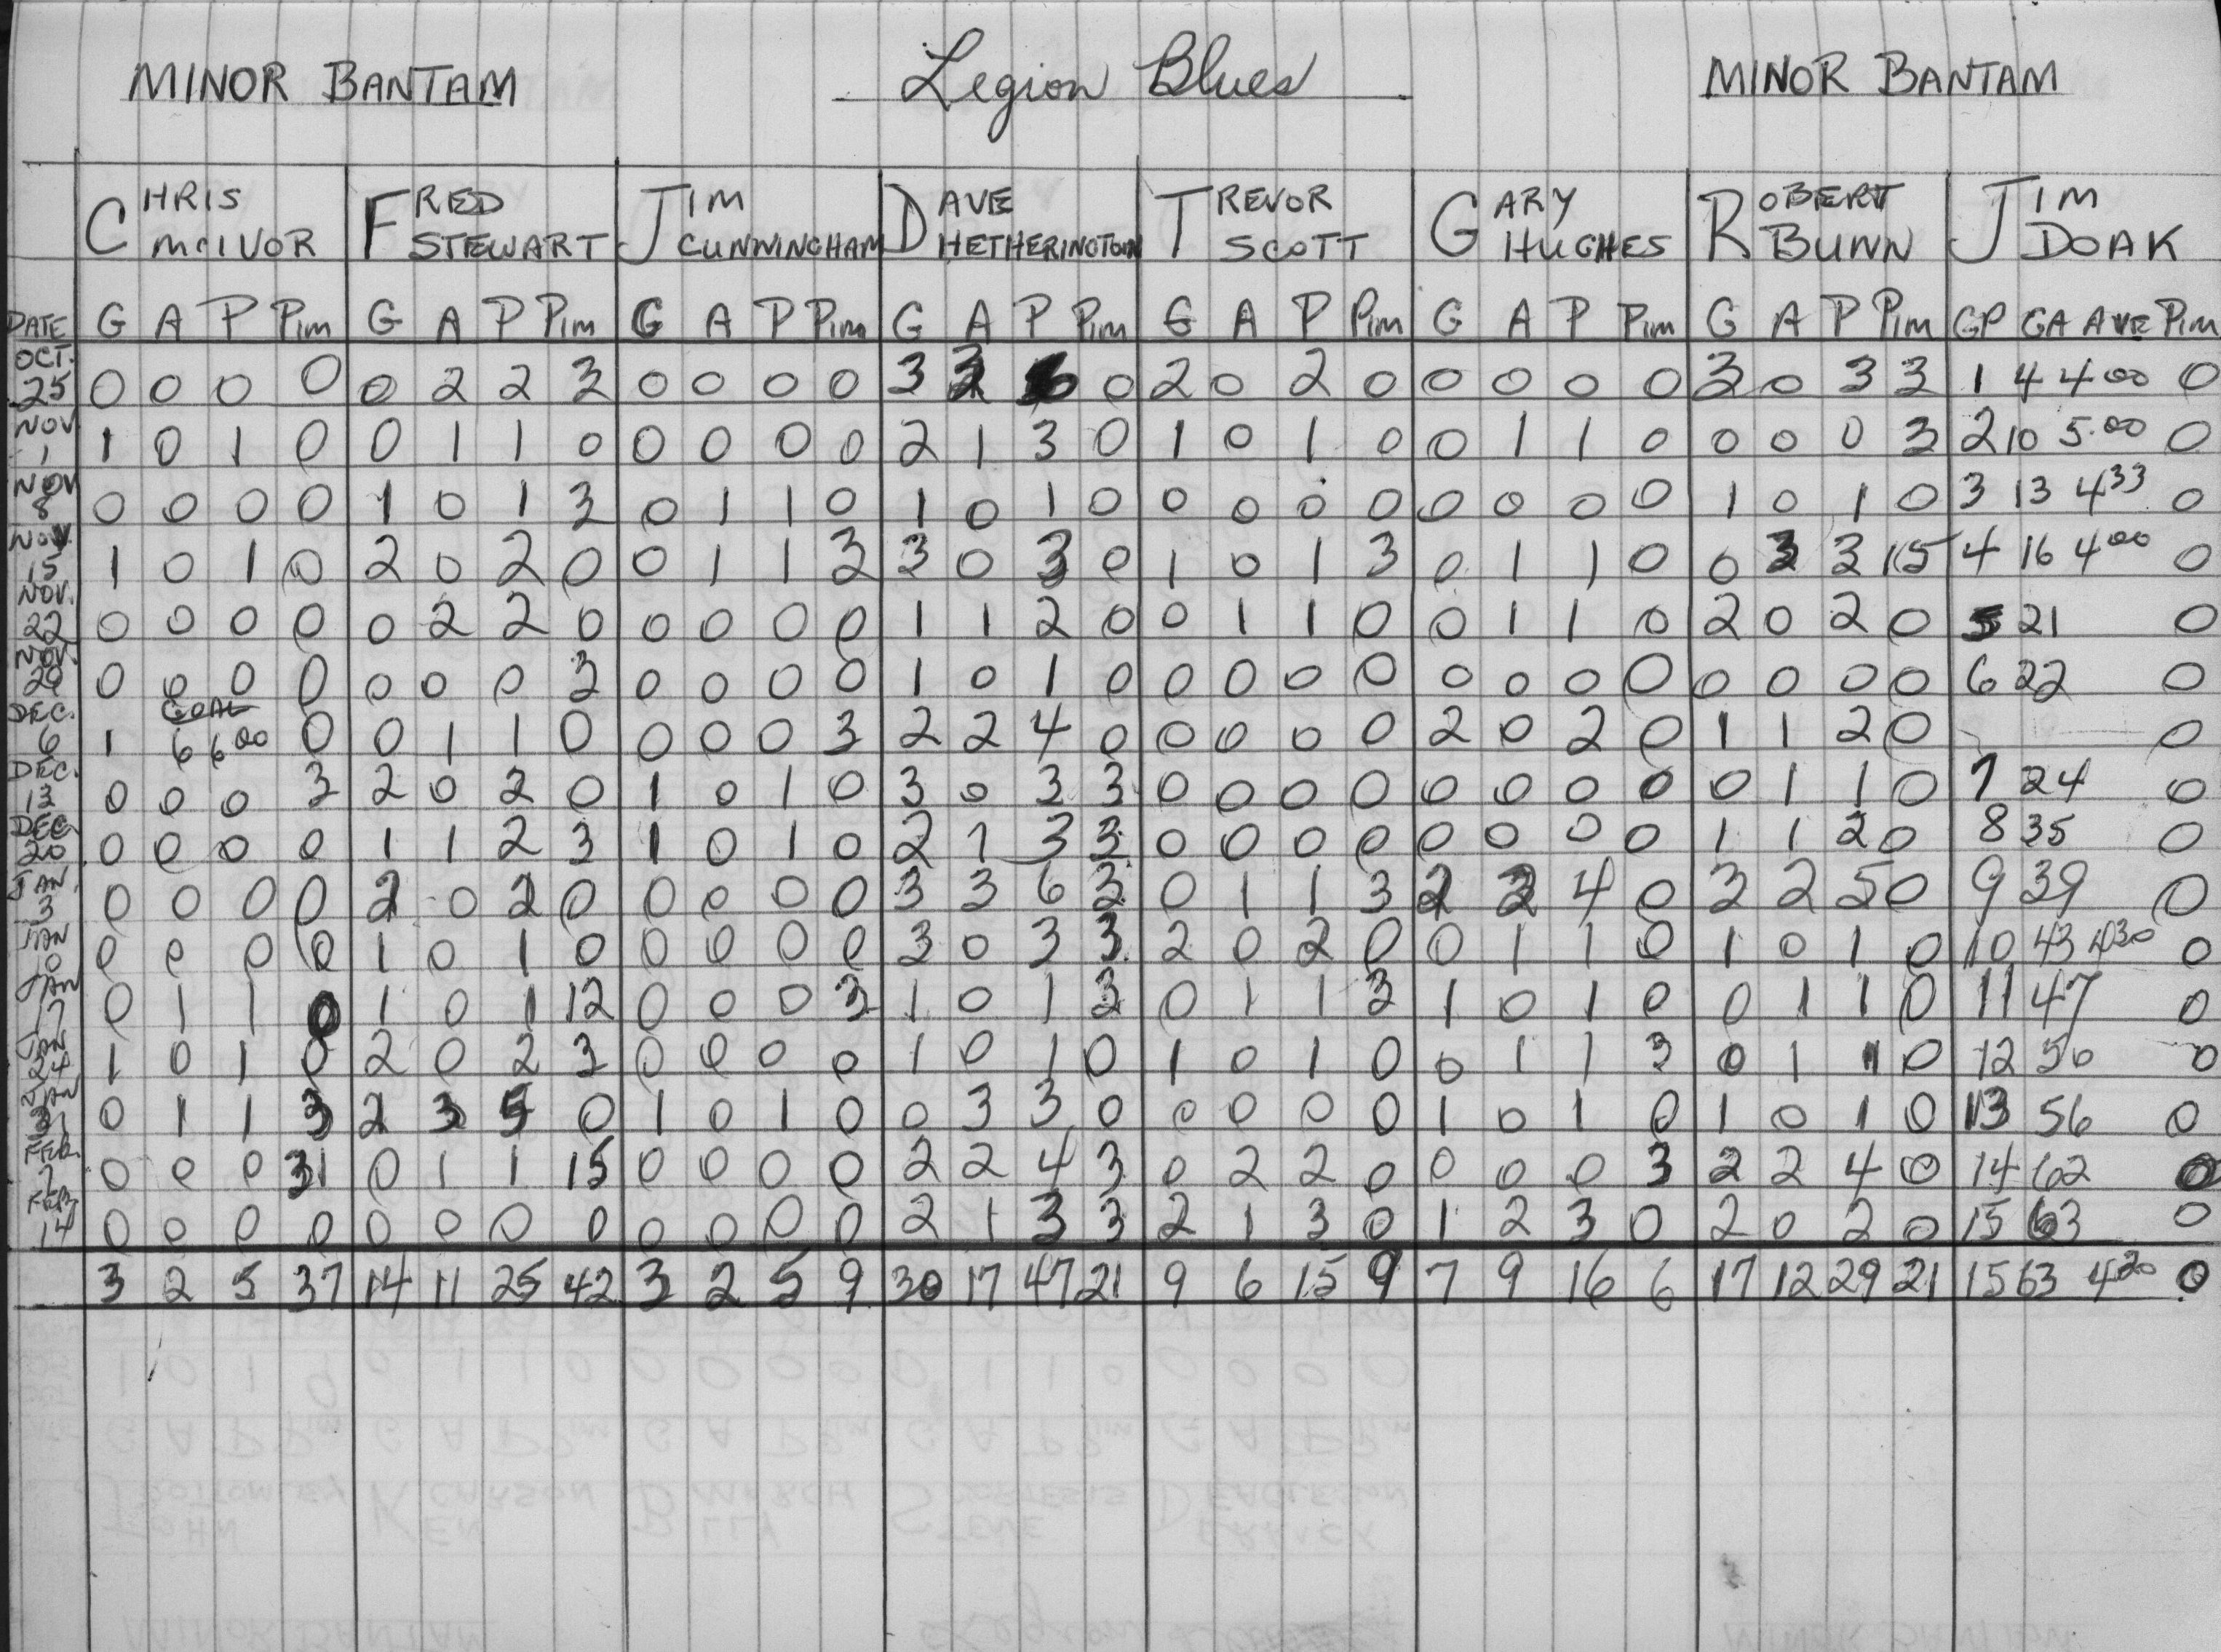 MINOR BANTAM Legion Blues MINOR BANTAM
CHRIS MCIVOR FRED STEWART JIM CUNNINGHAM DAVE HETHERINGTON TREVOR SCOTT GARY HUGHES ROBERT BUNN JIM DOAK
DATE G A P Pim G A P Pim G A P Pim G A P Pim G A P Pim G A P Pim G A P Pim GP GA AVE Pim
OCT. 25 0 0 0 0 0 2 2 3 0 0 0 0 3 3 6 0 2 0 2 0 0 0 0 0 3 0 3 3 1 4 4.00 0
NOV 1 1 0 1 0 0 1 1 0 0 0 0 0 2 1 3 0 1 0 1 0 0 1 1 0 0 0 0 3 2 10 5.00 0
NOV 8 0 0 0 0 1 0 1 3 0 1 1 0 1 0 1 0 0 0 0 0 0 0 0 0 1 0 1 0 3 13 4 33 0
NOV. 15 1 0 1 0 2 0 2 0 0 1 1 3 3 0 3 0 1 0 1 3 0 1 1 0 0 3 3 15 4 16 4 00 0
NOV. 22 0 0 0 0 0 2 2 0 0 0 0 0 1 1 2 0 0 1 1 0 0 1 1 0 2 0 2 0 5 21 0
NOV. 29 0 0 0 0 0 0 0 3 0 0 0 0 1 0 1 0 0 0 0 0 0 0 0 0 0 0 0 0 6 22 0
DEC. 6 1 GOAL 6 6 00 0 0 1 1 0 0 0 0 3 2 2 4 0 0 0 0 0 2 0 2 0 1 1 2 0 0
DEC. 13 0 0 0 3 2 0 2 0 1 0 1 0 3 0 3 3 0 0 0 0 0 0 0 0 0 1 1 0 7 24 0
DEC. 20 0 0 0 0 1 1 2 3 1 0 1 0 2 1 3 3 0 0 0 0 0 0 0 0 1 1 2 0 8 35 0
JAN. 3 0 0 0 0 2 0 2 0 0 0 0 0 3 3 6 3 0 1 1 3 2 2 4 0 3 2 5 0 9 39 0
JAN 10 0 0 0 0 1 0 1 0 0 0 0 0 3 0 3 3 2 0 2 0 0 1 1 0 1 0 1 0 10 43 4 30 0
JAN 17 0 1 1 0 1 0 1 12 0 0 0 3 1 0 1 3 0 1 1 3 1 0 1 0 0 1 1 0 11 47 0
JAN 24 1 0 1 0 2 0 2 3 0 0 0 0 1 0 1 0 1 0 1 0 0 1 1 3 0 1 1 0 12 50 0
JAN 31 0 1 1 3 2 3 5 0 1 0 1 0 0 3 3 0 0 0 0 0 1 0 1 0 1 0 1 0 13 56 0
FEB. 7 0 0 0 31 0 1 1 15 0 0 0 0 2 2 4 3 0 2 2 0 0 0 0 3 2 2 4 0 14 62 0
FEB. 14 0 0 0 0 0 0 0 0 0 0 0 0 2 1 3 3 2 1 3 0 1 2 3 0 2 0 2 0 15 63 0
3 2 5 37 14 11 25 42 3 2 5 9 30 17 47 21 9 6 15 9 7 9 16 6 17 12 29 21 15 63 4 20 0